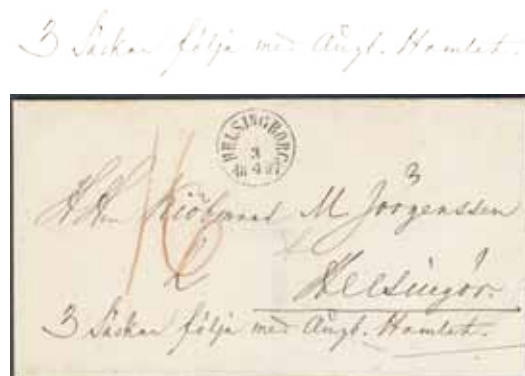 3 Säckar följa med Ångb. Hamlet.
HELSINGBORG
3
4
H Herr Kiöbmand M Jörgenssen
Helsingör.
3 Säckar följa med Ångb. Hamlet.